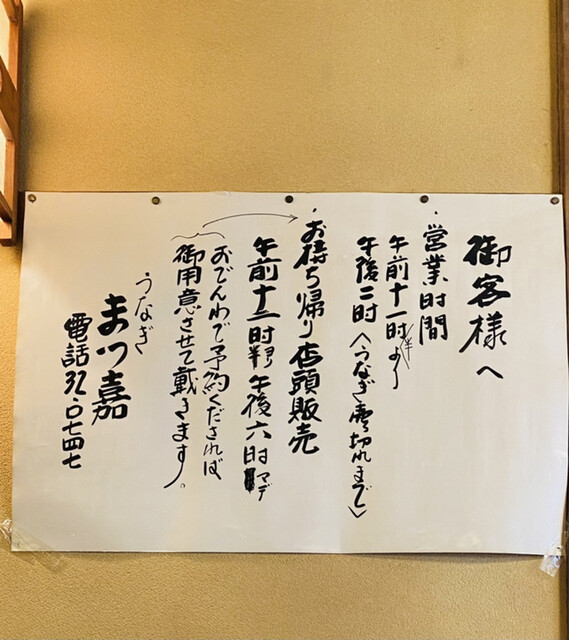 御客様へ
・営業時間
午前十一時半より
午後二時〈うなぎ売切れまで〉
・お持ち帰り店頭販売
午前十一時半ヨリ午後六時マデ
おでんわで予約くだされば
御用意させて戴きます。
うなぎ
まつ嘉
電話32-0747